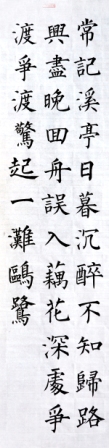 常記溪亭日暮沉醉不知歸路
興盡晚回舟誤入藕花深處爭
渡爭渡驚起一灘鷗鷺